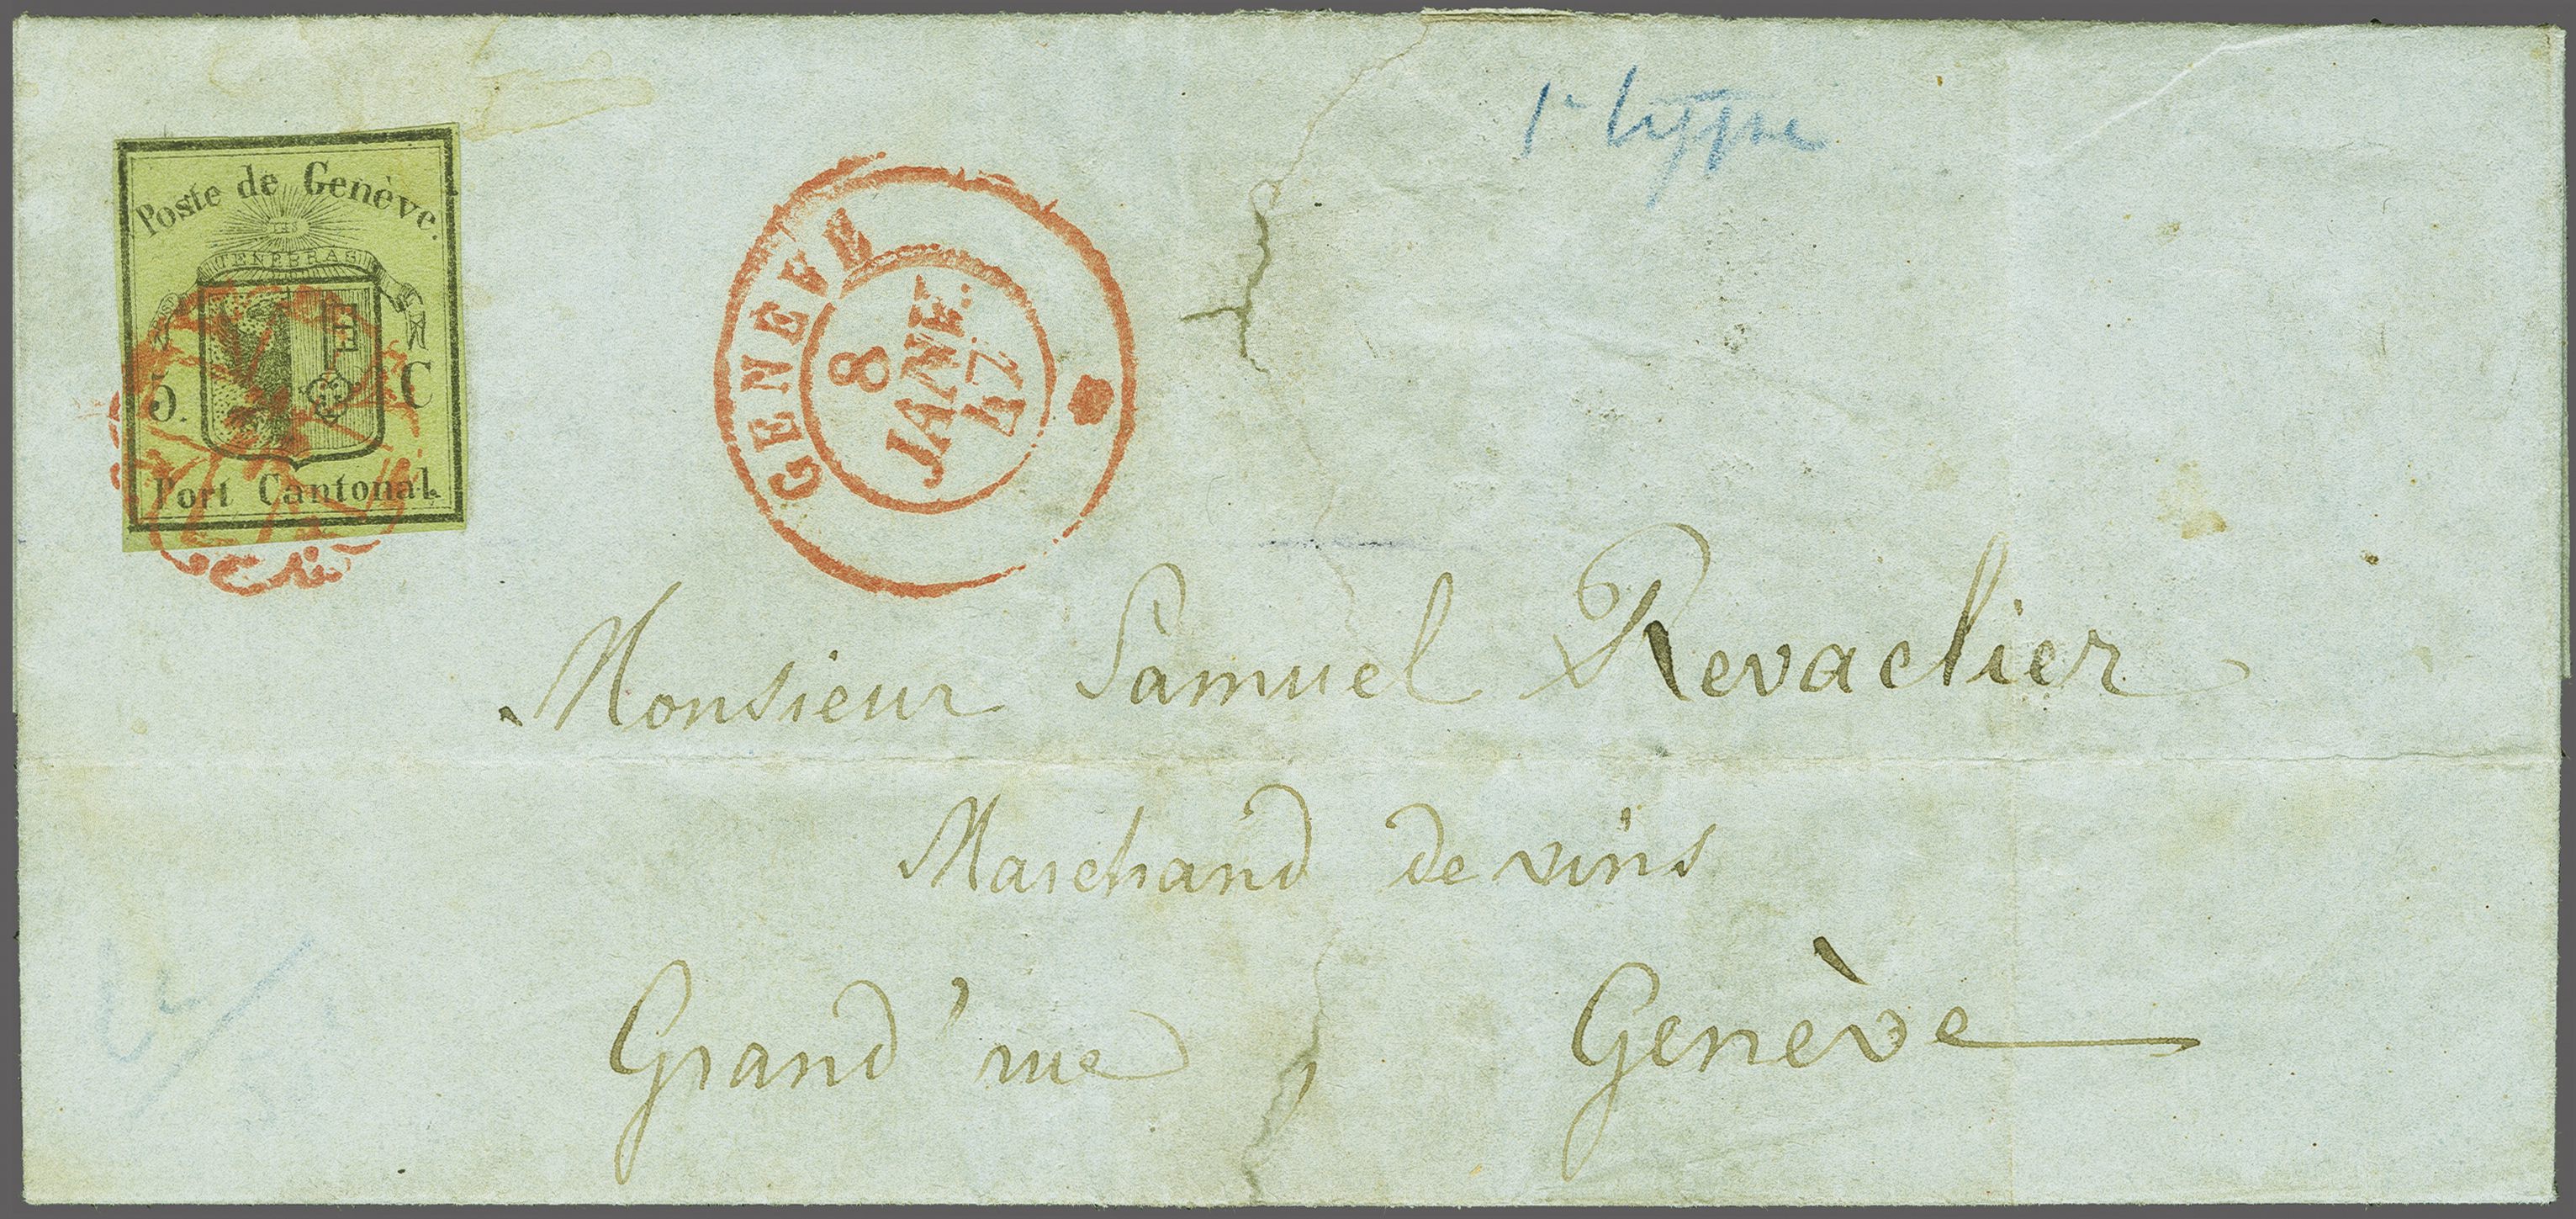 Poste de Genève.
IHS
TENEBRAS
5. C
Port Cantonal.
GENEVE
8
JANV.
47
Monsieur Samuel Revaclier
Marchand de vins
Grand' rue, Genève